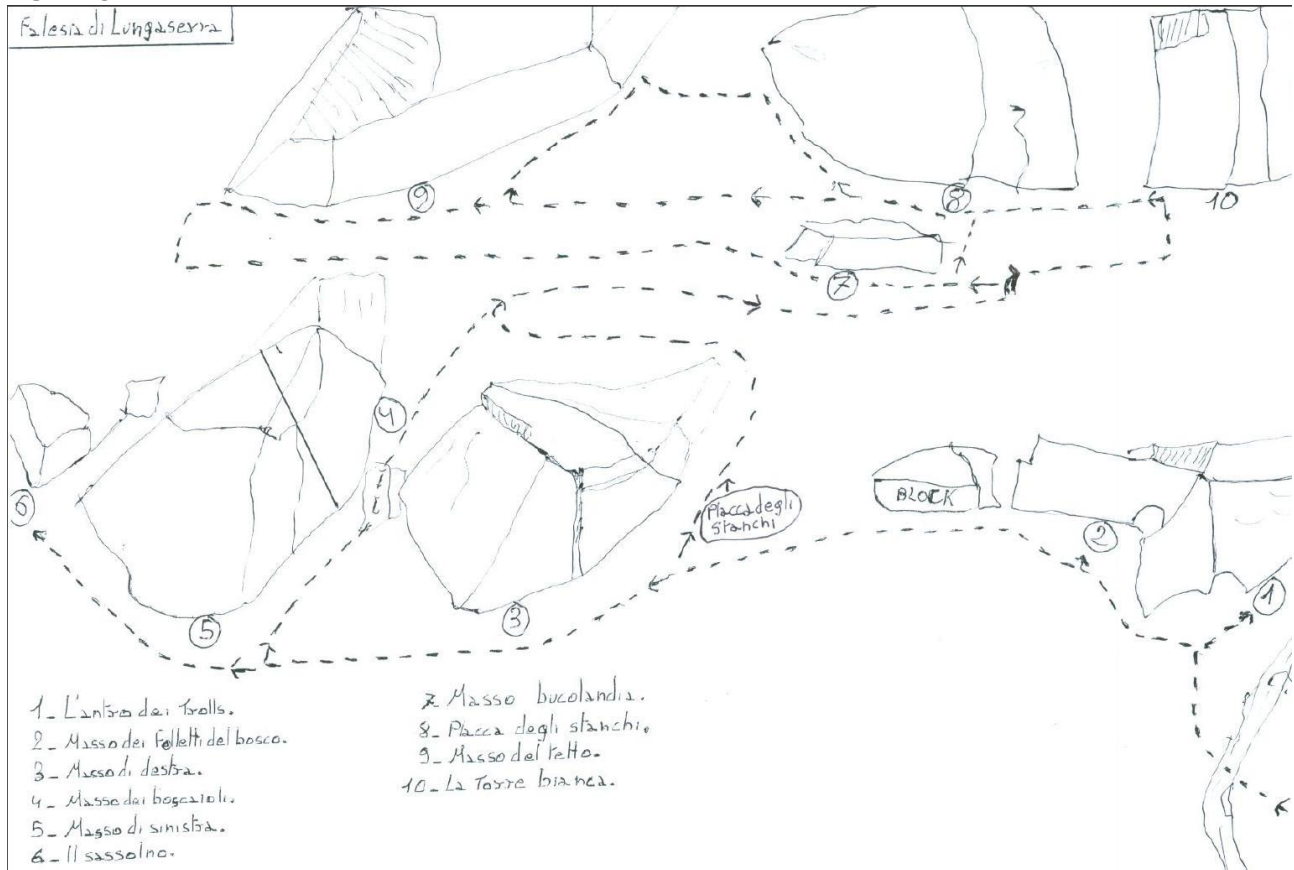 Falesia di Lungaserra
9
8
10
7
4
6
BLOCK
Placca degli
Stanchi
2
1
5
3
1_ L'antro dei Trolls.
2_ Masso dei Folletti del bosco.
3_ Masso di destra.
4_ Masso dei boscaioli.
5_ Masso di sinistra.
6_ Il sassolno.
7_ Masso bucolandia.
8_ Placca degli stanchi.
9_ Masso del tetto.
10_ La Torre bianca.